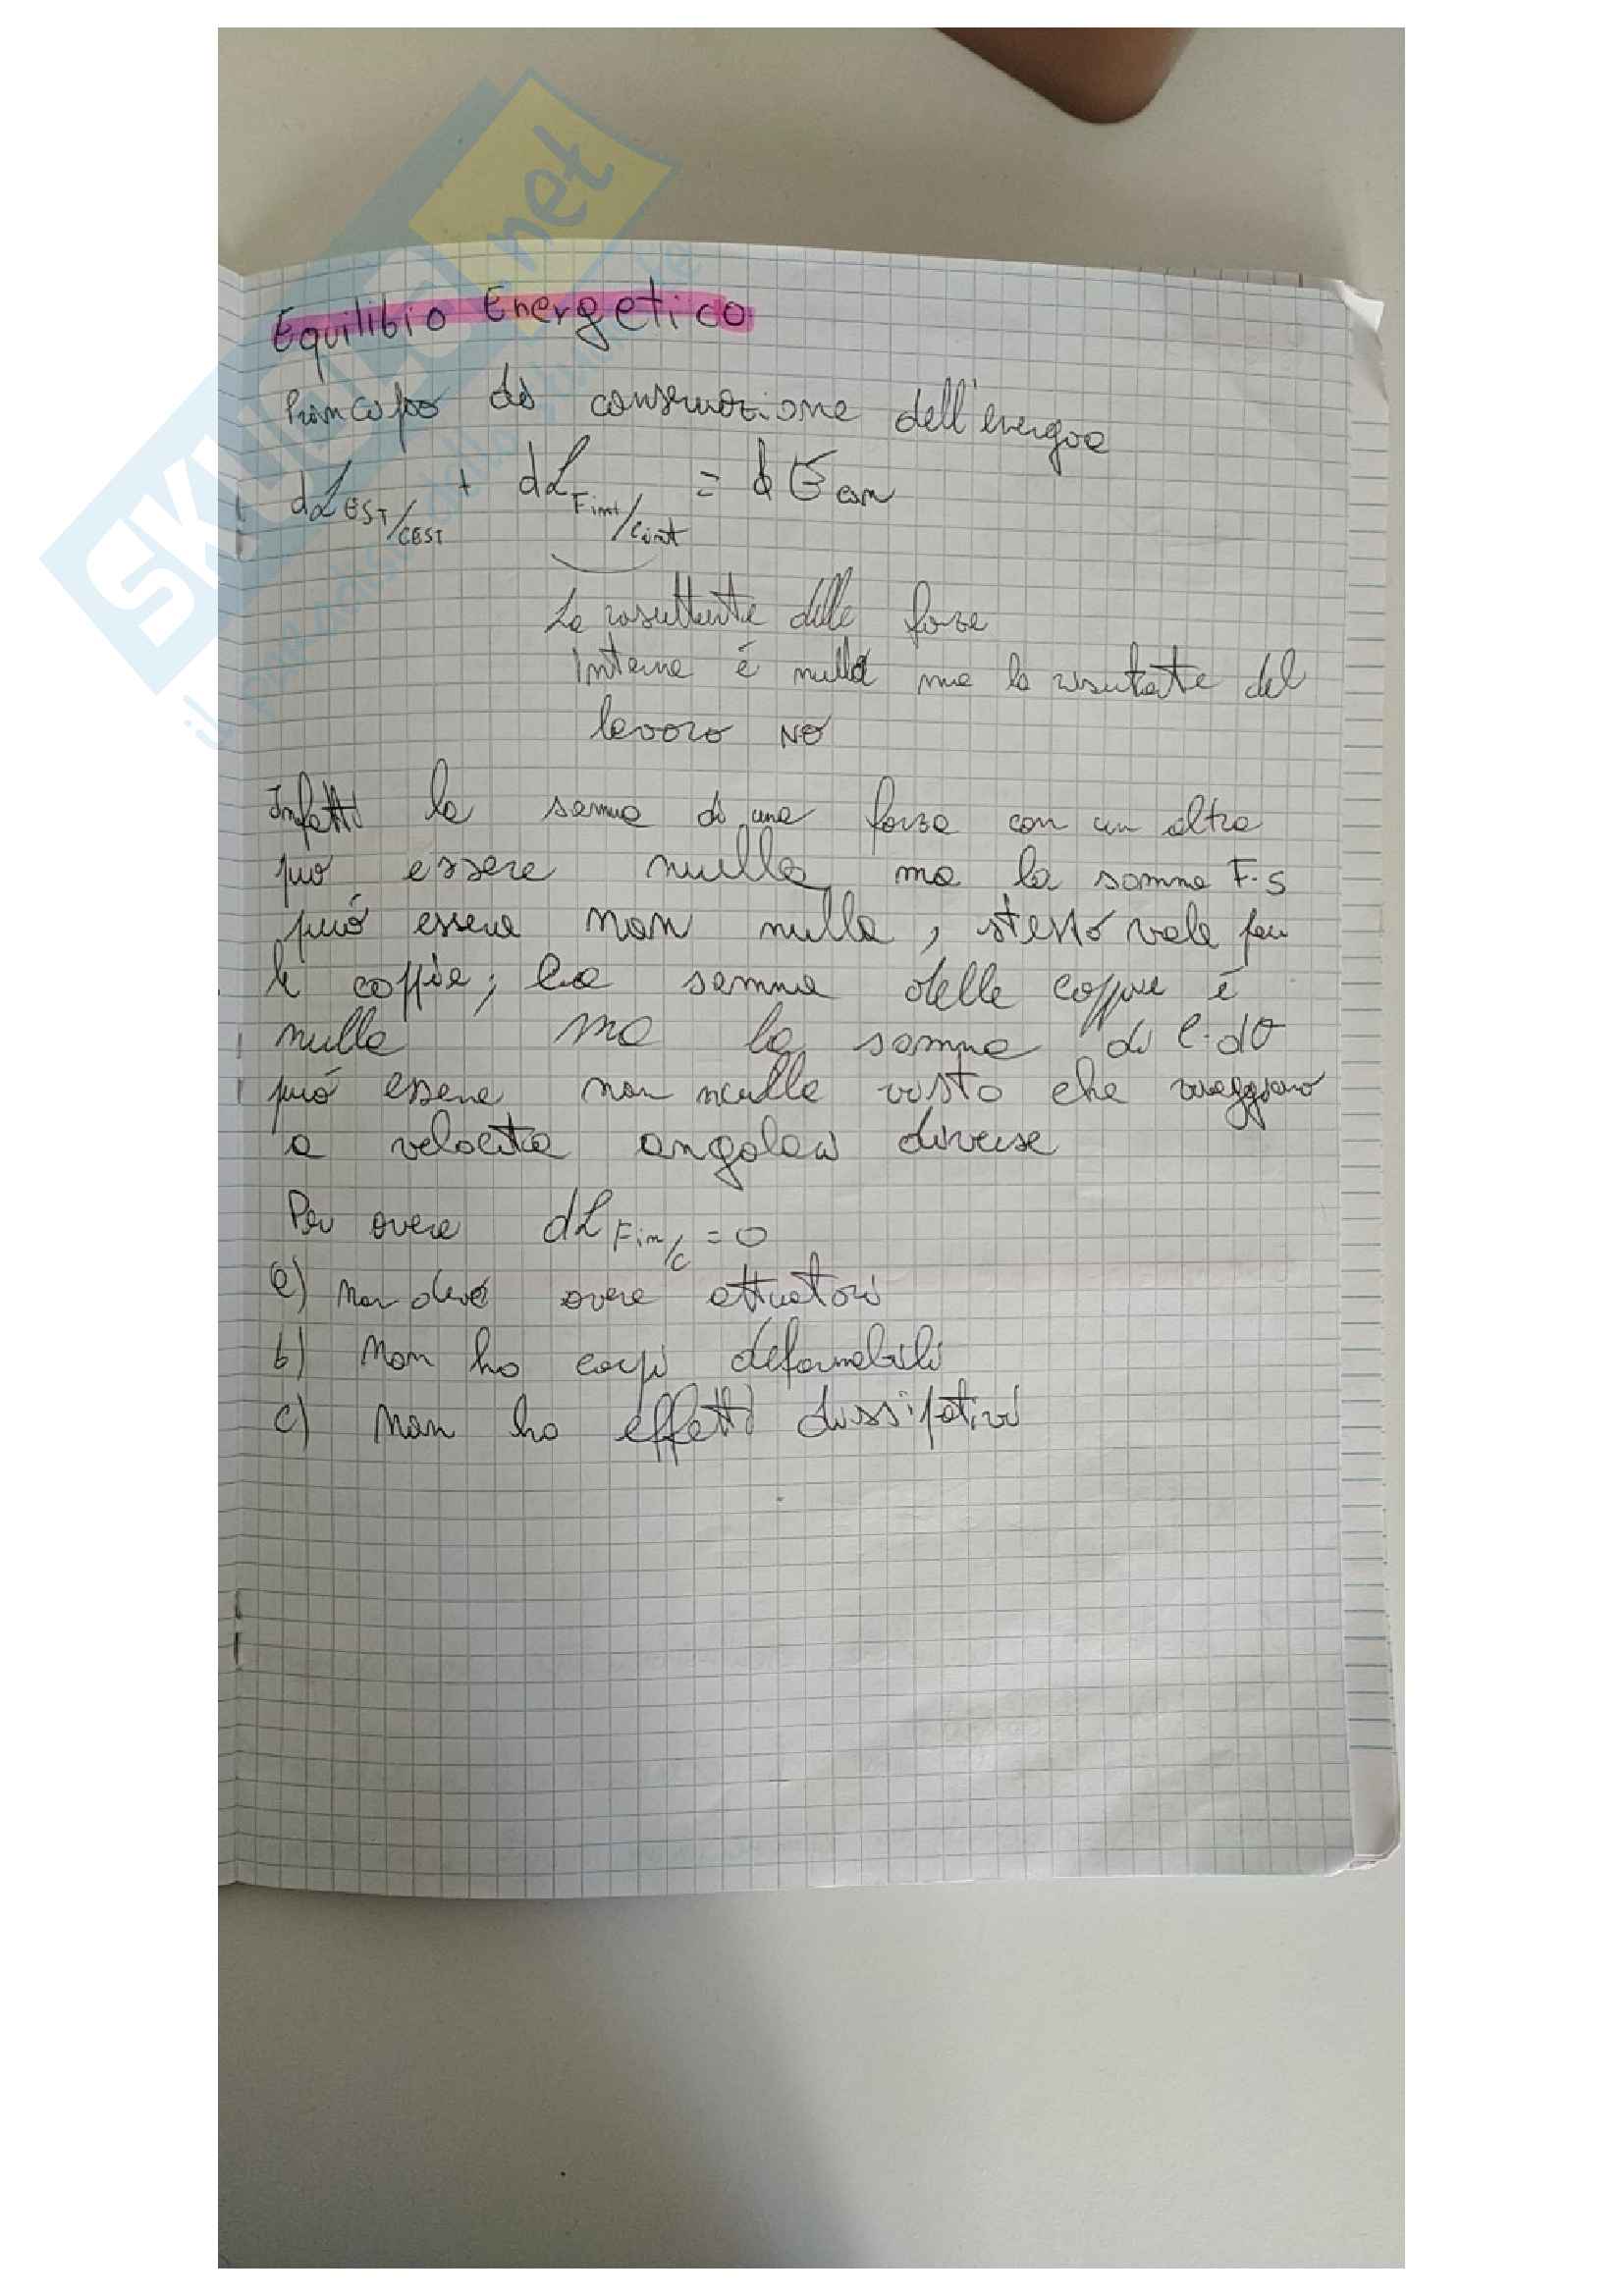 Equilibio Energetico
Principio di conservazione dell'energia
dL EST/CEST + dL Fint/Cint = dEcin
La risultante delle forze
interne é nulla ma la risultate del
lavoro NO
Infatti la somma di una forza con un altra
puo essere nulla ma la somma F·s
puó essere non nulla, stesso vale per
le coppie; La somma delle coppie é
nulla ma la somma di C·dθ
puó essere non nulla visto che viaggiano
a velocita angolari diverse
Per avere dL Fin/c = 0
a) non devo avere attuatori
b) Non ho corpi deformabili
c) Non ho effetti dissipativi
SKUOLA.net